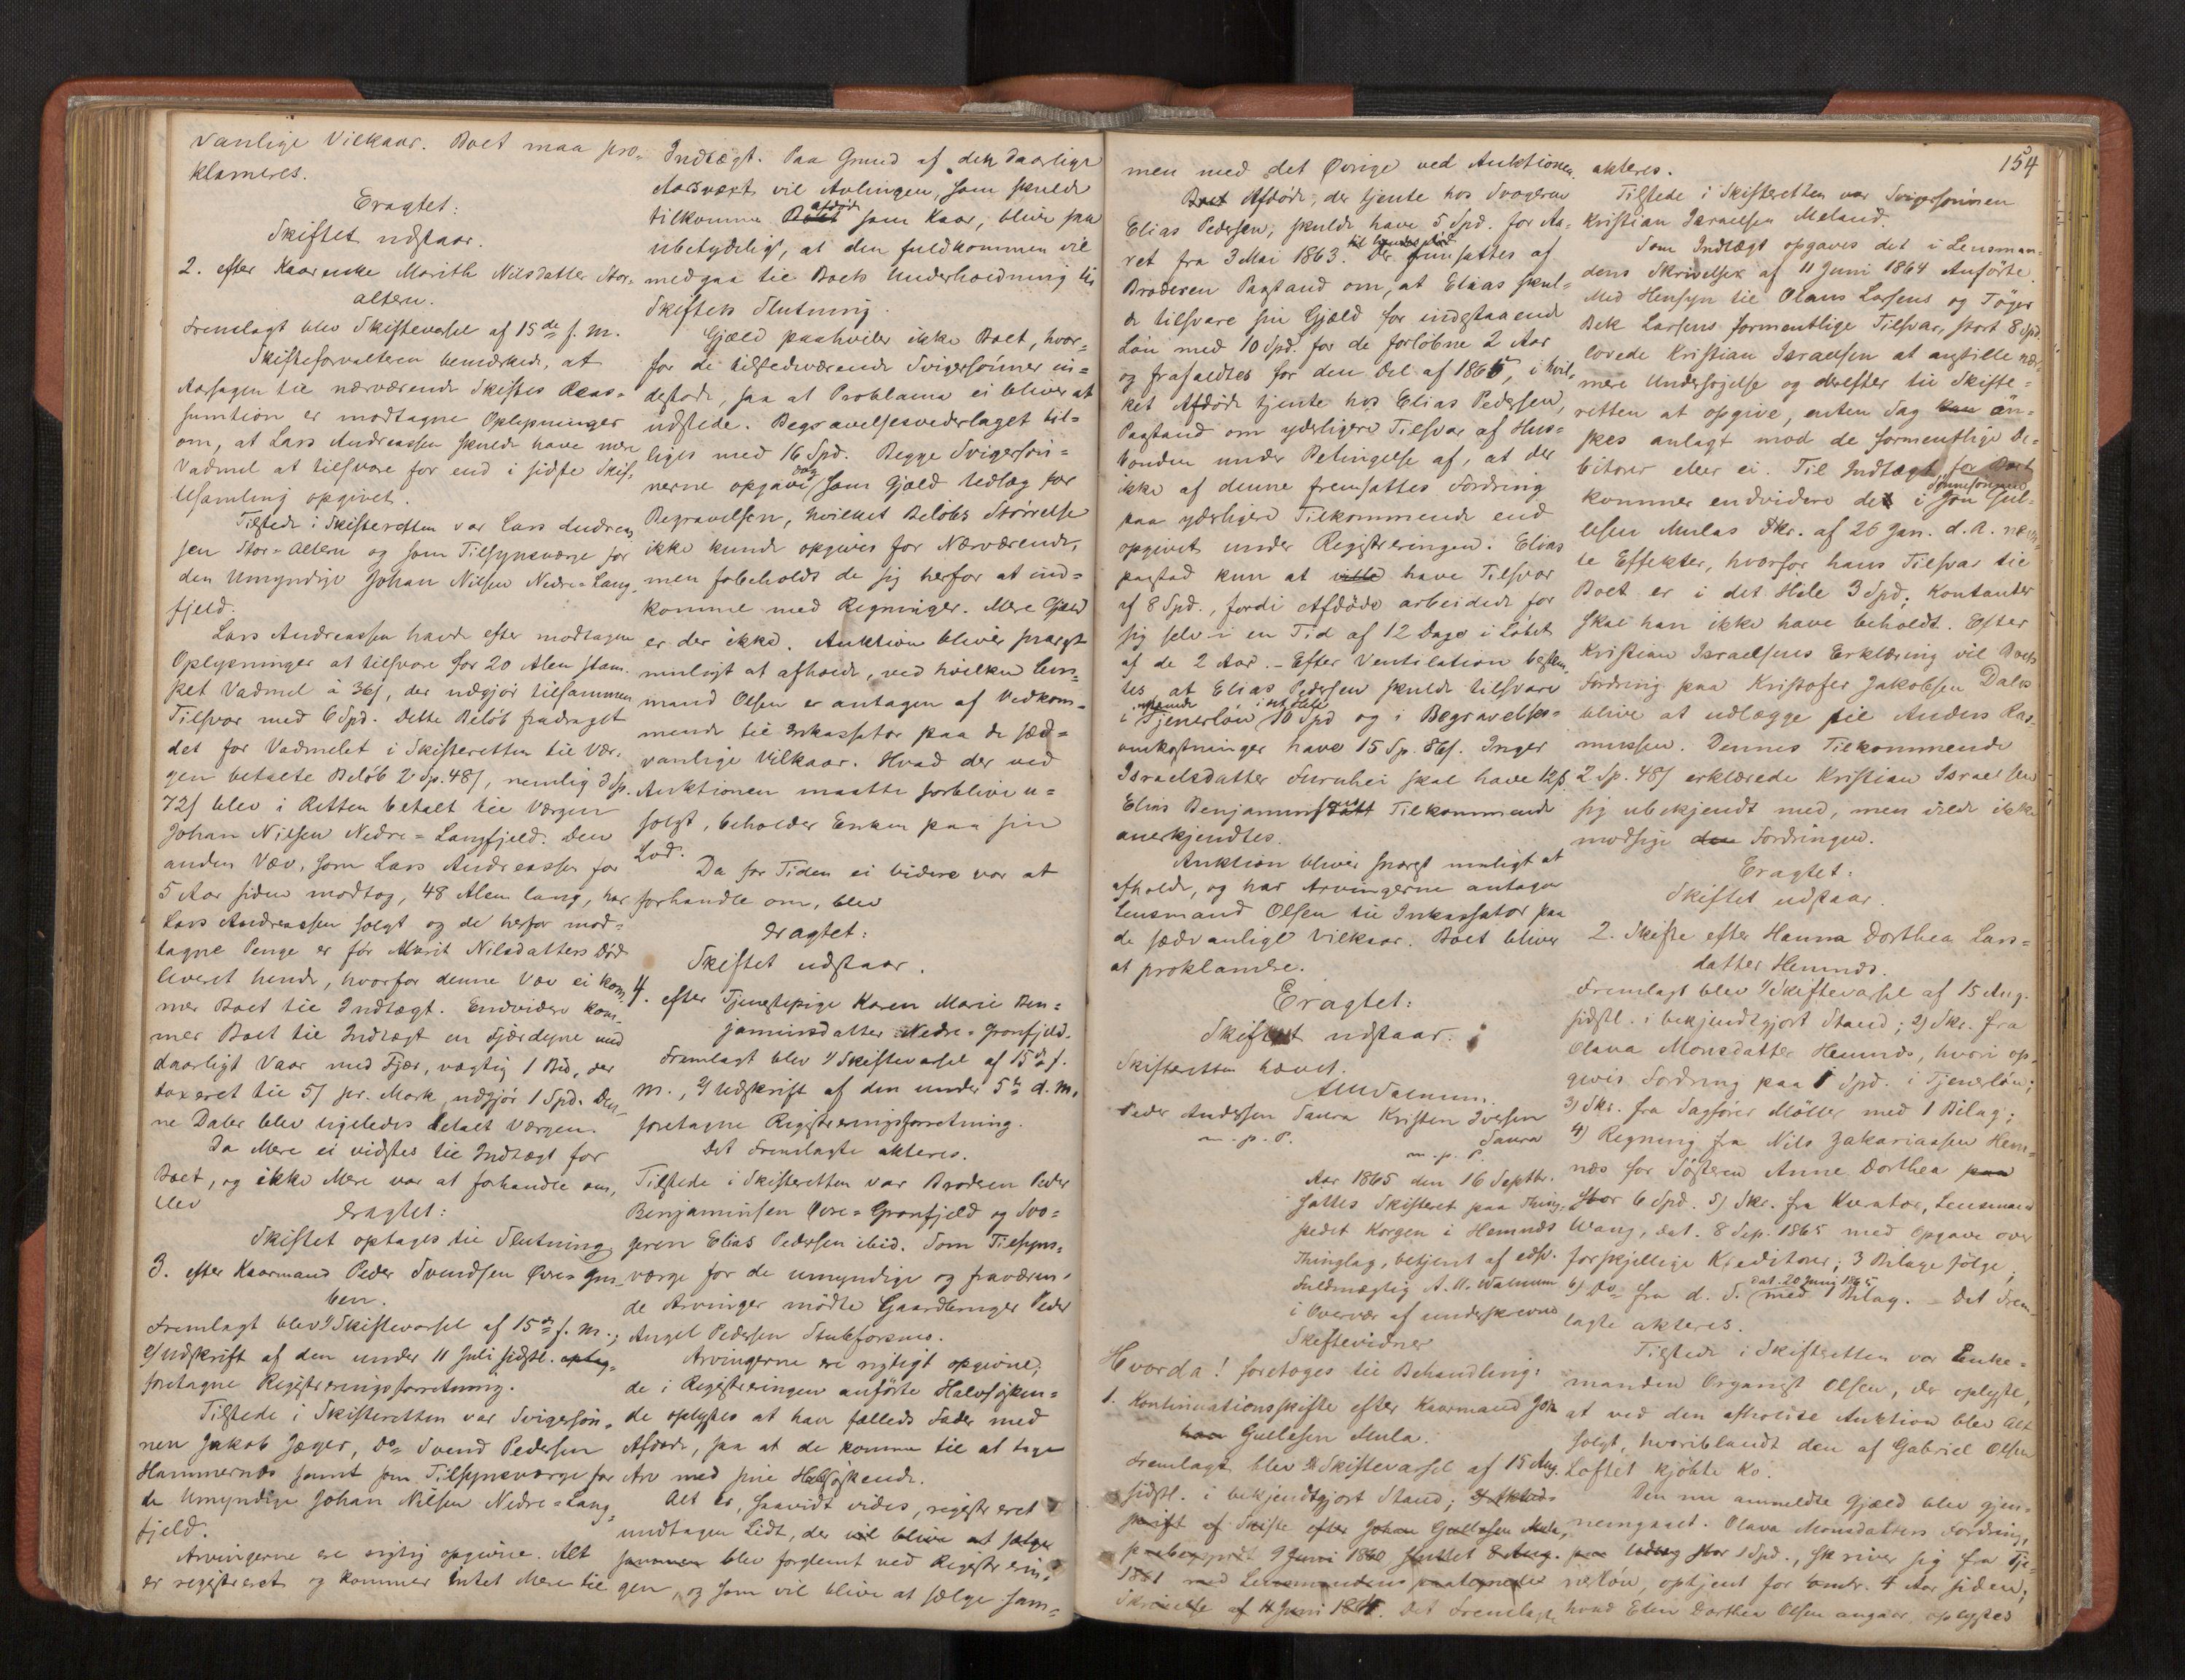 vanlige Vilkaar. Boet maa pro-
klameres.
Eragtet:
Skiftet udstaar.
2. efter Kaarenke Marith Nilsdatter Stor-
altern.
Fremlagt blev Skiftevarsel af 15de f. M.
Skifteforvalteren bemærkede, at
Aarsagen til nærværende Skiftes Reas-
sumtion er modtagne Oplysninger
om, at Lars Andreassen skulde have mere
Vadmel at tilsvare for end i sidste Skif-
tesamling opgivet.
Tilstede i Skifteretten var Lars Andreas-
sen Stor-Altern og som Tilsynsværge for
den Umyndige Johan Nilsen Nedre-Lang-
fjeld.
Lars Andreassen havde efter modtagen
Oplysninger at tilsvare for 20 Alen stam-
pet Vadmel à 36 s, der udgjør tilsammen
Tilsvar med 6 Spd. Dette Beløb fradraget
det for Vadmelet i Skifteretten til Vær-
gen betalte Beløb 2 Sp. 48 s, nemlig 3 Sp.
72 s blev i Retten betalt til Værgen
Johan Nilsen Nedre-Langfjeld. Den
anden Væv, som Lars Andreassen for
5 Aar siden modtog, 48 Alen lang, har
Lars Andreassen solgt og de herfor mod-
tagne Penge er før Marit Nilsdatters Død
leveret hende, hvorfor denne Væv ei kom-
mer Boet til Indtægt. Endvidere kom-
mer Boet til Indtægt en Fjærdyne med
daarligt Vaar med Fjær, vægtig 1 Bd, der
taxeret til 5 s pr. Mark udgjør 1 Spd. Den-
ne Daler blev ligeledes betalt Værgen.
Da Mere ei vidstes til Indtægt for
Boet, og ikke Mere var at forhandle om,
blev
eragtet:
Skiftet optages til Slutning
3. efter Kaarmand Peder Svendsen Øvre-
ben.
Fremlagt blev 1/ Skiftevarsel af 15de f. M.;
2/ Udskrift af den under 11 Juli sidstl.
foretagne Registreringsforretning.
Tilstede i Skifteretten var Svigersøn-
nen Jakob Jæger, Do Svend Pedersen
Hammernæs samt som Tilsynsværge for
de Umyndige Johan Nilsen Nedre-Lang-
fjeld.
Arvingerne ere rigtig opgivne. Alt
er registreret og kommer intet Mere til
Indtægt. Paa Grund af den daarlige
Aarsvæxt vil Avlingen, som skulde
tilkomme Boet afdøde som Kaar, blive saa
ubetydeligt, at den fuldkommen vil
medgaa til Boets Underholdning til
Skiftets Slutning.
Gjæld paahviler ikke Boet, hvor-
for de tilstedeværende Svigersønner in-
destode, saa at Proklama ei bliver at
udstede. Begravelsesvederlaget bil-
liges med 16 Spd. Begge Svigersøn-
nerne opgave og som Gjæld Udlæg for
Begravelsen, hvilket Beløbs Størrelse
ikke kunde opgives for Nærværende,
men forbeholdt de sig herfor at ind-
komme med Regninger. Mere Gjæld
er der ikke. Auktion bliver snarest
muligt at afholde, ved hvilken Lens-
mand Olsen er antagen af Vedkom-
mende til Inkassator paa de sæd-
vanlige Vilkaar. Hvad der ved
Auktionen maatte forblive u-
solgt, beholder Enken paa sin
Lod.
Da for Tiden ei videre var at
forhandle om, blev
eragtet:
Skiftet udstaar.
4. efter Tjenestepige Karen Marie Ben-
jaminsdatter Nedre-Granfjeld.
Fremlagt blev 1/ Skiftevarsel af 15de f.
M., 2/ Udskrift af den under 5te d. M.
foretagne Registreringsforretning.
Det Fremlagte akteres.
Tilstede i Skifteretten var Broderen Peder
Benjaminsen Øvre-Granfjeld og Svo-
geren Elias Pedersen ibid. Som Tilsyns-
værge for de umyndige og fraværen-
de Arvinger mødte Gaardbruger Peder
Angel Pedersen Stubforsmo.
Arvingerne ere rigtigt opgivne;
de i Registreringen anførte Halvsøsken-
de oplystes at have fælleds Fader med
Afdøde, saa at de komme til at tage
Arv med sine Helsøskende.
Alt er, saavidt vides, registreret
undtagen Lidt, der vil blive at sælge
sammen blev forglemt ved Registrerin-
gen, og som vil blive at sælge sam-
154
men med det Øvrige ved Auktionen.
Boet Afdøde, der tjente hos Svogeren
Elias Pedersen, skulde have 5 Spd. for Aa-
ret fra 3 Mai 1863. til hendes Død. Der fremsattes af
Broderen Paastand om, at Elias skul-
de tilsvare sin Gjæld for indestaaende
Løn med 10 Spd. for de forløbne 2 Aar
og frafaldtes for den Del af 1865, i hvil-
ket Afdøde tjente hos Elias Pedersen,
Paastand om yderligere Tilsvar af Hus-
bonden under Betingelse af, at der
ikke af denne fremsattes Fordring
paa yderligere Tilkommende end
opgivet under Registreringen. Elias
paastod kun at ville have Tilsvar
af 8 Spd., fordi Afdøde arbeidede for
sig selv i en Tid af 12 Dage i Løbet
af de 2 Aar. - Efter Ventilation bestem-
tes, at Elias Pedersen skulde tilsvare
i indestaaende Tjenerløn i det Hele 10 Spd og i Begravelses-
omkostninger have 15 Sp. 86 s. Inger
Israelsdatter Furuhei skal have 12 s.
Elias Benjaminsens Tilkommende
anerkjendtes.
Auktion bliver snarest muligt at
afholde, og har Arvingerne antaget
Lensmand Olsen til Inkassator paa
de sædvanlige Vilkaar. Boet bliver
at proklamere.
Eragtet:
Skiftet udstaar.
Skifteretten hævet.
AUWalnum.
Peder Andersen Saura Kristen Iversen
m. p. P. Saura
m. p. P.
Aar 1865 den 16 Septbr.
sattes Skifteret paa Thing-
stedet Korgen i Hemnæs
Thinglag, betjent af edsv.
Fuldmægtig A. U. Walnum
i Overvær af underskrevne
Skiftevidner
Hvorda! foretoges til Behandling:
1. Kontinuationsskifte efter Kaarmand Jon
Gullesen Mula.
Fremlagt blev Skiftevarsel af 15 Aug.
sidstl. i bekjendtgjort Stand;
skrift af Skifte efter Johan Gullesen Mula,
paabegyndt 9 Juni 1860 sluttet 8 Aug.
1861 med Lensmandens
Skrivelse af 11 Juni 1864. Det Fremlagte
akteres.
Tilstede i Skifteretten var Svigersønnen
Kristian Israelsen Meland.
Som Indtægt opgaves det i Lensman-
dens Skrivelse af 11 Juni 1864 Anførte.
Med Hensyn til Olaus Larsens og Tøger
Bek Larsens formentlige Tilsvar, stort 8 Spd.
lovede Kristian Israelsen at anstille nær-
mere Undersøgelse og derefter til Skifte-
retten at opgive, enten Sag kan øn-
skes anlagt mod de formentlige De-
bitorer eller ei. Til Indtægt for Boet
kommer endvidere det i Sønnesønnen Jon Gul-
lesen Mulas Skr. af 26 Jan. d. A. nævn-
te Effekter, hvorfor hans Tilsvar til
Boet er i det Hele 3 Spd; Kontanter
skal han ikke have beholdt. Efter
Kristian Israelsens Erklæring vil Boets
Fordring paa Kristofer Jakobsen Dalen
blive at udlægge til Anders Ras-
mussen. Dennes Tilkommende
2 Sp. 48 s erklærede Kristian Israelsen
sig ubekjendt med, men vilde ikke
modsige den Fordringen.
Eragtet:
Skiftet udstaar.
2. Skifte efter Hanna Dorthea Lars-
datter Hemnæs.
Fremlagt blev 1/ Skiftevarsel af 15 Aug.
sidstl. i bekjendtgjort Stand; 2) Skr. fra
Olava Monsdatter Hemnæs, hvori op-
gives Fordring paa 1 Spd. i Tjenerløn;
3) Skr. fra Sagfører Møller med 1 Bilag;
4) Regning fra Nils Zakariassen Hem-
næs for Søsteren Anne Dorthea paa
stor 6 Spd. 5) Skr. fra Kurator, Lensmand
Wang, dat. 8 Sep. 1865 med Opgave over
forskjellige Kreditorer; 3 Bilage følge;
6) Do fra d. S. dat. 20 Juni 1865 med 1 Bilag. - Det Frem-
lagte akteres.
Tilstede i Skifteretten var Enke-
manden Organist Olsen, der oplyste,
at ved den afholdte Auktion blev Alt
solgt, hvoriblandt den af Gabriel Olsen
Loftet kjøbte Ko.
Den nu anmeldte Gjæld blev gjen-
nemgaaet. Olava Monsdatters Fordring,
stor 1 Spd., skriver sig fra Tje-
nerløn, optjent for omtr. 4 Aar siden;
hvad Elen Dorthea Olsen angaar, oplystes